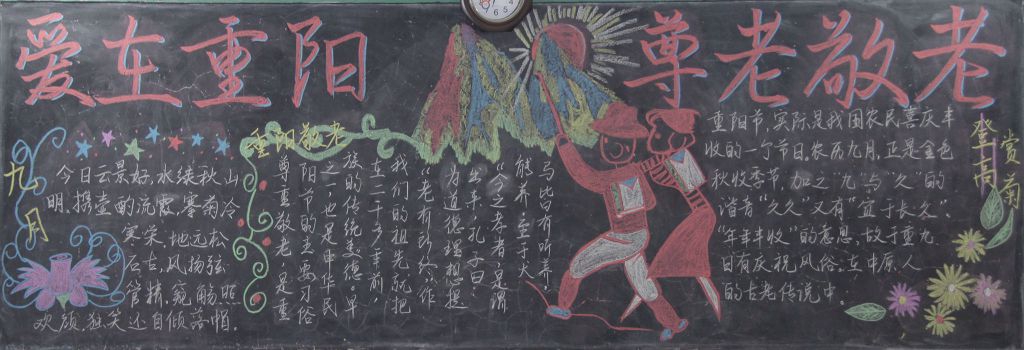 爱在重阳
尊老敬老
九月
今日云景好,水绿秋山
明。携壶酌流霞,寒菊泛
寒荣。地远松
石古,风扬弦
管清。窥觞照
欢颜,独笑还自倾。落帽
重阳敬老
尊重敬老,是重
阳节的主要习俗
之一,也是中华民
族的传统美德。早
在二千多年前,
我们的祖先就把
"老有所终"作
为道德理想提
出来,孔子曰:
"今之孝者,是谓
能养,至于犬
马皆能有所养;
重阳节,实际是我国农民喜庆丰
收的一个节日。农历九月,正是金色
秋收季节,加之"九"与"久"的
谐音"久久"又有"宜于长久"、
"年年丰收"的意思,故于重九
日有庆祝风俗。在中原人
的古老传说中。
登高
赏菊